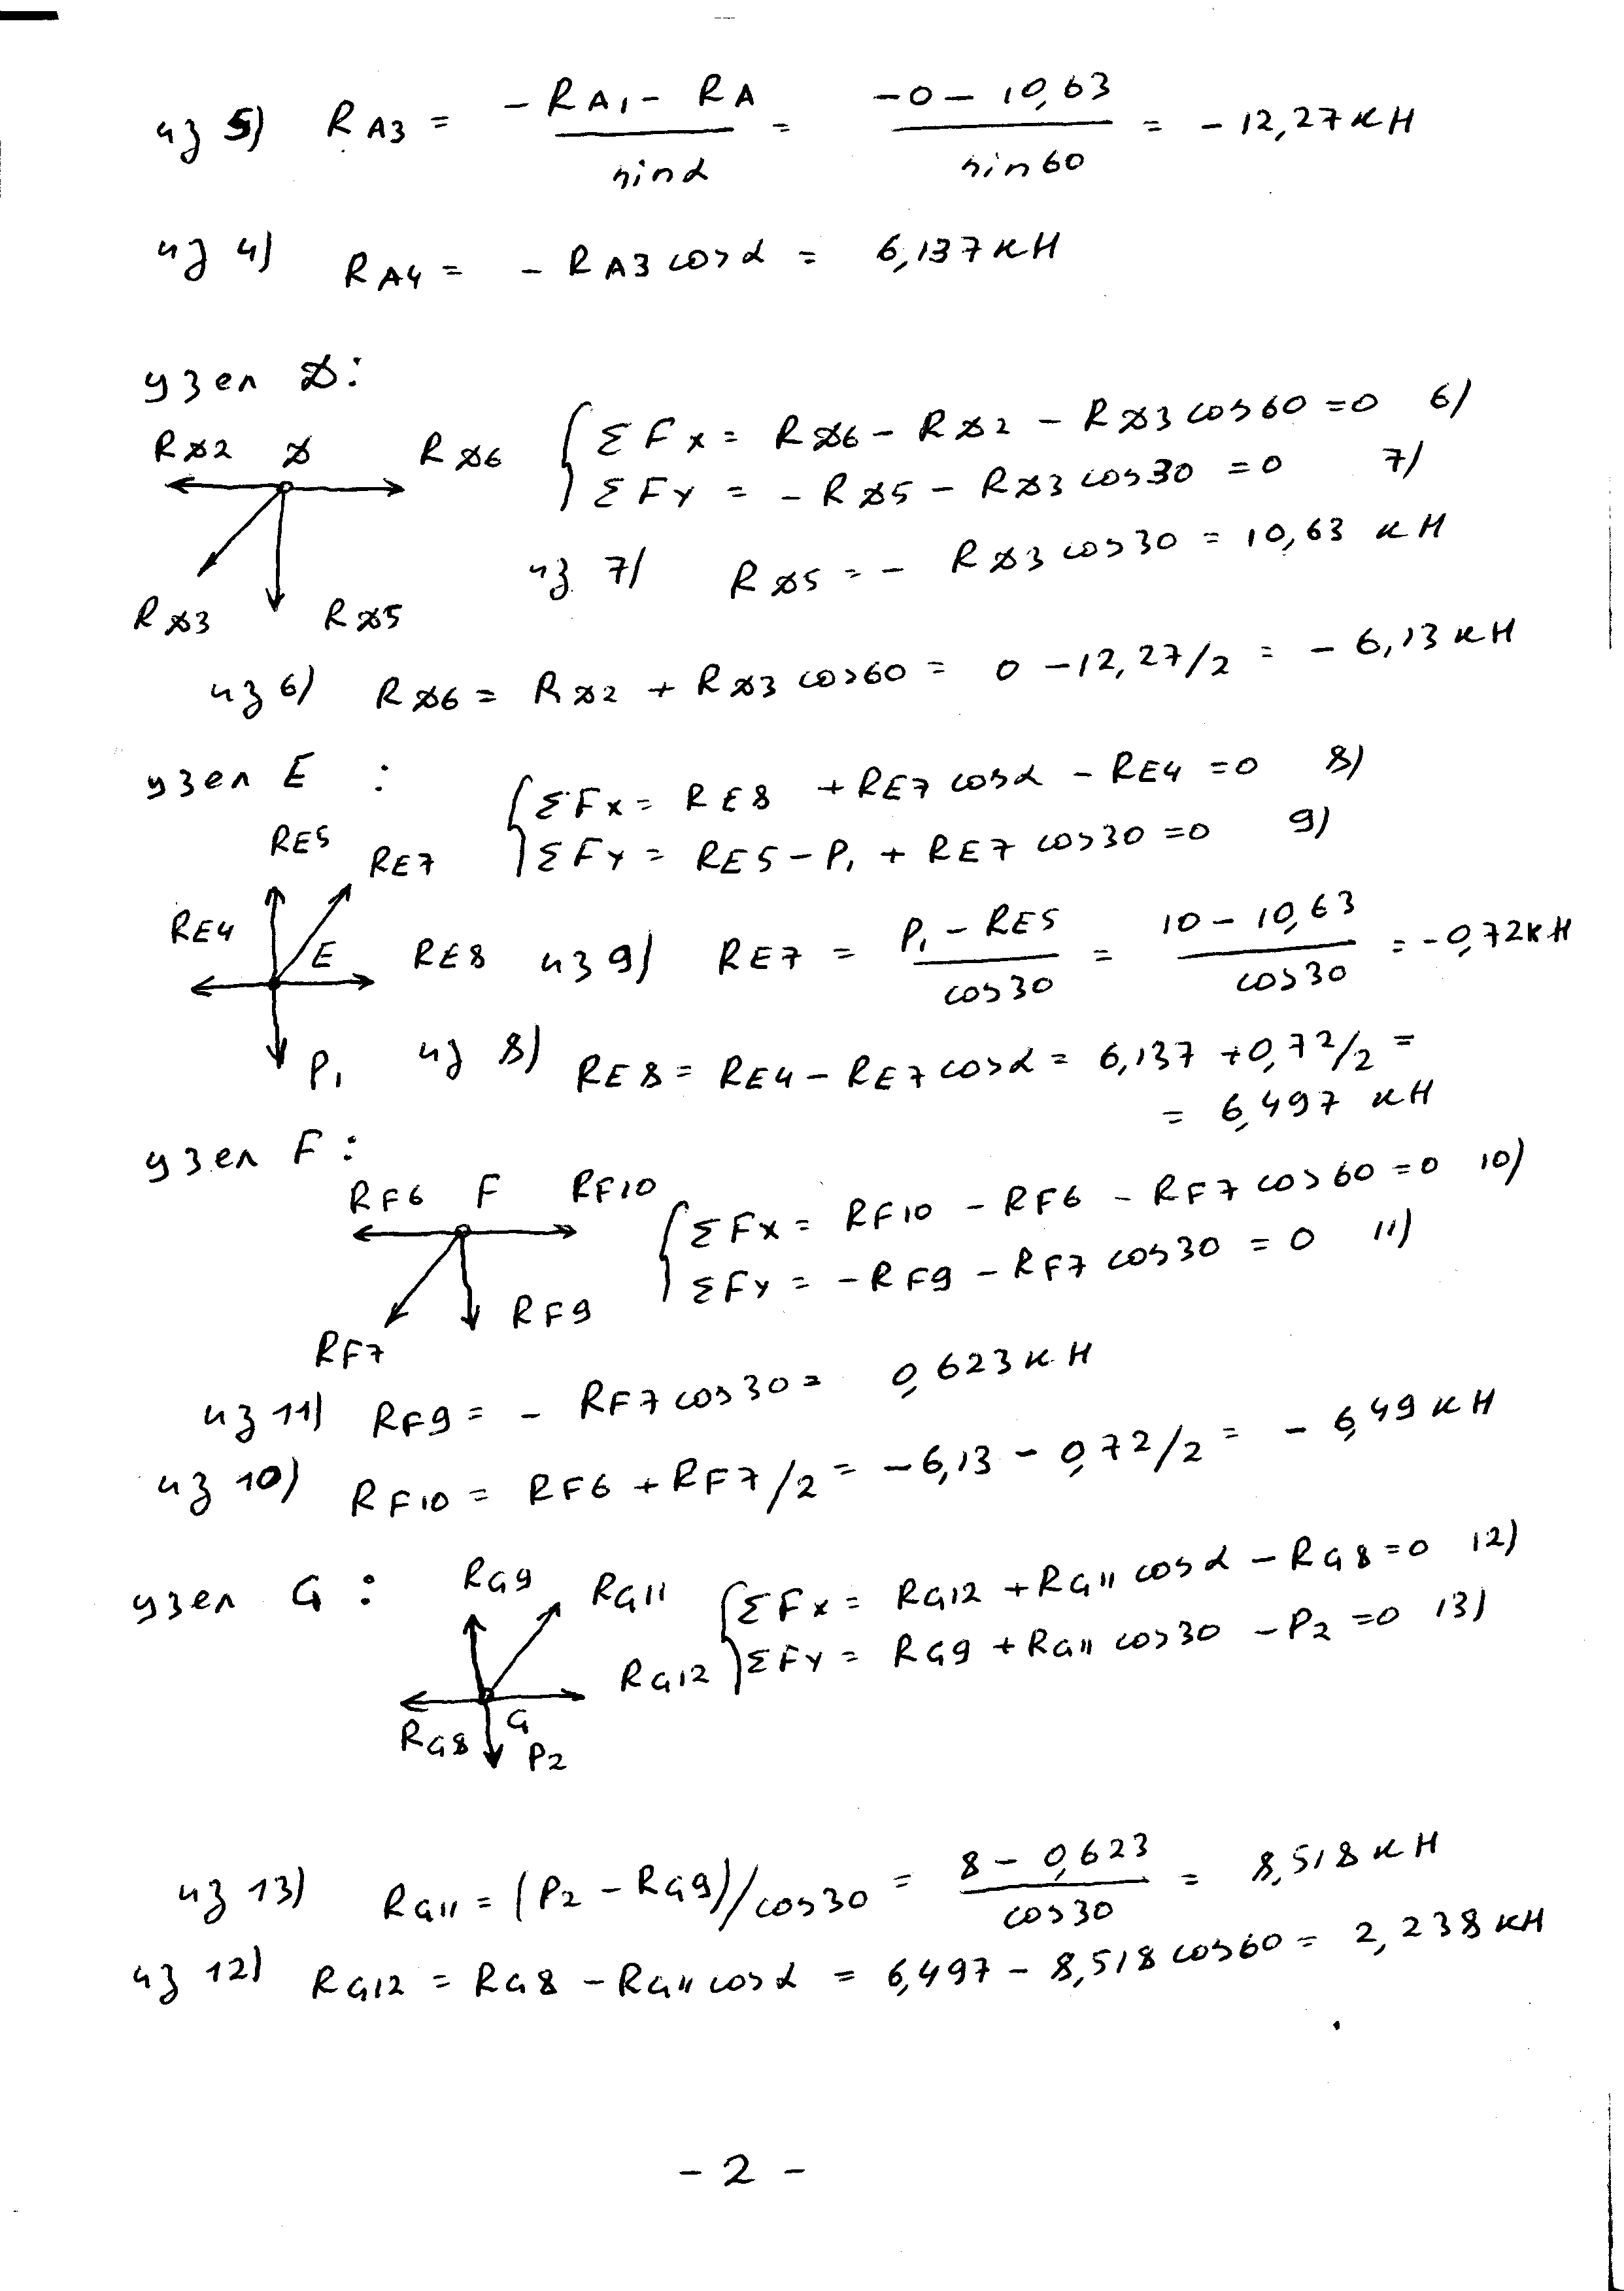 из 5) RA3 = (-RA1 - RA)/sinα = (-0 - 10,63)/sin60 = -12,27кН
из 4) RA4 = - RA3 cosα = 6,137кН
узел D:
RD2 D RD6
RD3 RD5
{ΣFx = RD6 - RD2 - RD3 cos60 =0 6)
ΣFy = - RD5 - RD3 cos30 =0 7)
из 7) RD5 = - RD3 cos30 = 10,63 кН
из 6) RD6 = RD2 + RD3 cos60 = 0 -12,27/2 = - 6,13кН
узел E :
RE5 RE7
RE4 E RE8
P1
{ΣFx = RE8 + RE7 cosα - RE4 =0 8)
ΣFy = RE5 - P1 + RE7 cos30 =0 9)
из 9) RE7 = (P1 - RE5)/cos30 = (10 - 10,63)/cos30 = -0,72кН
из 8) RE8 = RE4 - RE7 cosα = 6,137 +0,72/2 =
= 6,497 кН
узел F:
RF6 F RF10
RF7 RF9
{ΣFx = RF10 - RF6 - RF7 cos60 =0 10)
ΣFy = -RF9 - RF7 cos30 = 0 11)
из 11) RF9 = - RF7 cos30 = 0,623кН
из 10) RF10 = RF6 + RF7/2 = -6,13 - 0,72/2 = - 6,49кН
узел G :
RG9 RG11
RG12
RG8 G P2
{ΣFx = RG12 + RG11 cosα - RG8 =0 12)
ΣFy = RG9 + RG11 cos30 - P2 =0 13)
из 13) RG11 = (P2 - RG9)/cos30 = (8 - 0,623)/cos30 = 8,518кН
из 12) RG12 = RG8 - RG11 cosα = 6,497 - 8,518 cos60 = 2,238кН
- 2 -